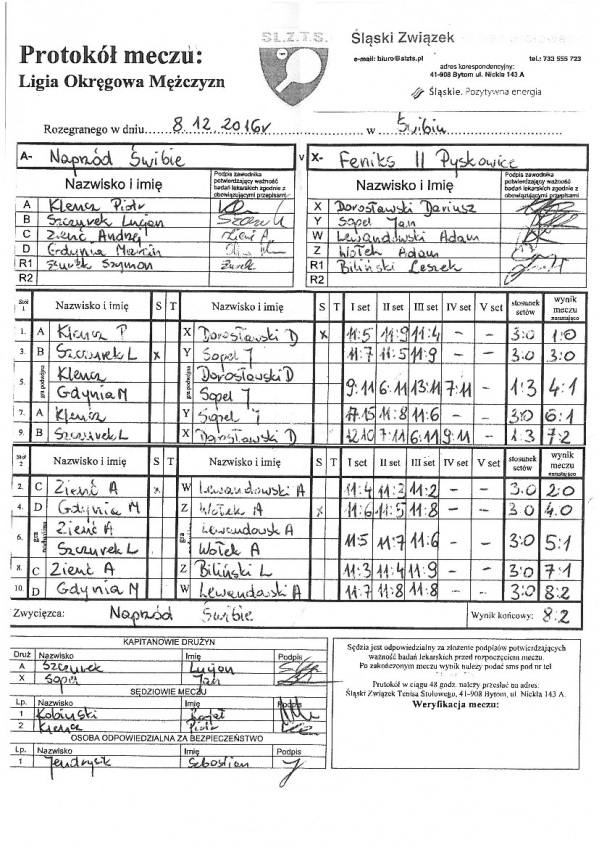 Protokół meczu:
Ligia Okręgowa Mężczyzn
SL.Z.T.S.
Śląski Związek
e-mail: biuro@slzts.pl tel.: 733 555 723
adres korespondencyjny:
41-908 Bytom ul. Nickla 143 A
Śląskie. Pozytywna energia
Rozegranego w dniu 8.12.2016r w Świbiu
A- Naprzód Świbie v X- Feniks II Pyskowice
Nazwisko i imię Podpis zawodnika potwierdzający ważność badań lekarskich zgodnie z obowiązującymi przepisami Nazwisko i imię Podpis zawodnika potwierdzający ważność badań lekarskich zgodnie z obowiązującymi przepisami
A Klencz Piotr X Dorosławski Dariusz
B Szczurek Lucjan Y Sopel Jan
C Zienć Andrzej Zienć A W Lewandowski Adam
D Gdynia Marcin Z Wołek Adam
R1 Żurek Szymon Żurek R1 Biliński Leszek
R2 R2
Stół 1 Nazwisko i imię S T Nazwisko i imię S T I set II set III set IV set V set stosunek setów wynik meczu narastająco
1. A Klencz P X Dorosławski D x 11:5 11:9 11:4 - - 3:0 1:0
3. B Szczurek L x Y Sopel J 11:7 11:5 11:9 - - 3:0 3:0
5. gra podwójna Klencz gra podwójna Dorosławski D
Gdynia M Sopel J 9:11 6:11 13:11 7:11 - 1:3 4:1
7. A Klencz X Sopel J 17:15 11:8 11:6 - - 3:0 6:1
9. B Szczurek L X Dorosławski D 12:10 7:11 6:11 9:11 - 1:3 7:2
Stół 2 Nazwisko i imię S T Nazwisko i imię S T I set II set III set IV set V set stosunek setów wynik meczu narastająco
2. C Zienć A x W Lewandowski A 11:4 11:2 11:2 - - 3:0 2:0
4. D Gdynia M Z Wołek A x 11:6 11:5 11:8 - - 3:0 4:0
6. Zienć A gra Lewandowsk A
Szczurek L Wołek A 11:5 11:7 11:6 - - 3:0 5:1
8. C Zienć A Z Biliński L 11:3 11:4 11:9 - - 3:0 7:1
10. D Gdynia M W Lewandowski A 11:7 11:8 11:8 - - 3:0 8:2
Zwycięzca: Naprzód Świbie Wynik końcowy: 8:2
KAPITANOWIE DRUŻYN
Druż Nazwisko Imię Podpis
A Szczurek Lucjan
X Sopel Jan
SĘDZIOWIE MECZU
Lp. Nazwisko Imię Podpis
1 Kobiński
2 Klencz Piotr
OSOBA ODPOWIEDZIALNA ZA BEZPIECZEŃSTWO
Lp. Nazwisko Imię Podpis
1 Jendrysik Sebastian
Sędzia jest odpowiedzialny za złożenie podpisów potwierdzających
ważność badań lekarskich przed rozpoczęciem meczu.
Po zakończonym meczu wynik należy podać sms pod nr tel
Protokół w ciągu 48 godz. należy przesłać na adres:
Śląski Związek Tenisa Stołowego, 41-908 Bytom, ul. Nickla 143 A.
Weryfikacja meczu: